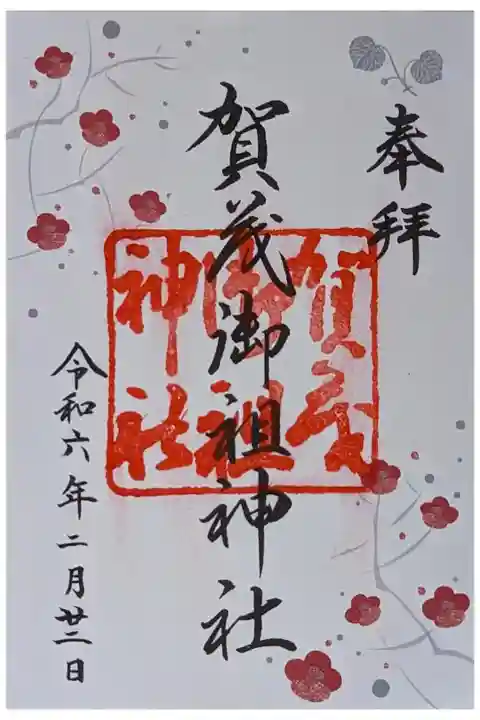 奉拝
賀茂御祖神社
賀茂
御祖
神社
令和六年二月廿二日